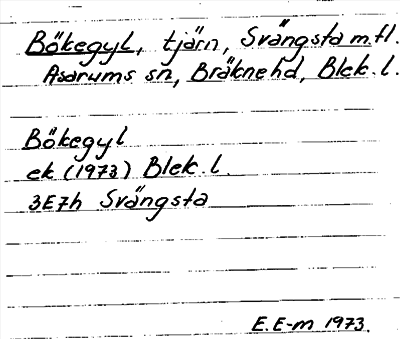 Bökegyl, tjärn, Svängsta m.fl.
Asarums sn, Bräknehd, Blek. l.
Bökegyl
ek (1973) Blek. l.
3E7h Svängsta
E. E-m 1973.